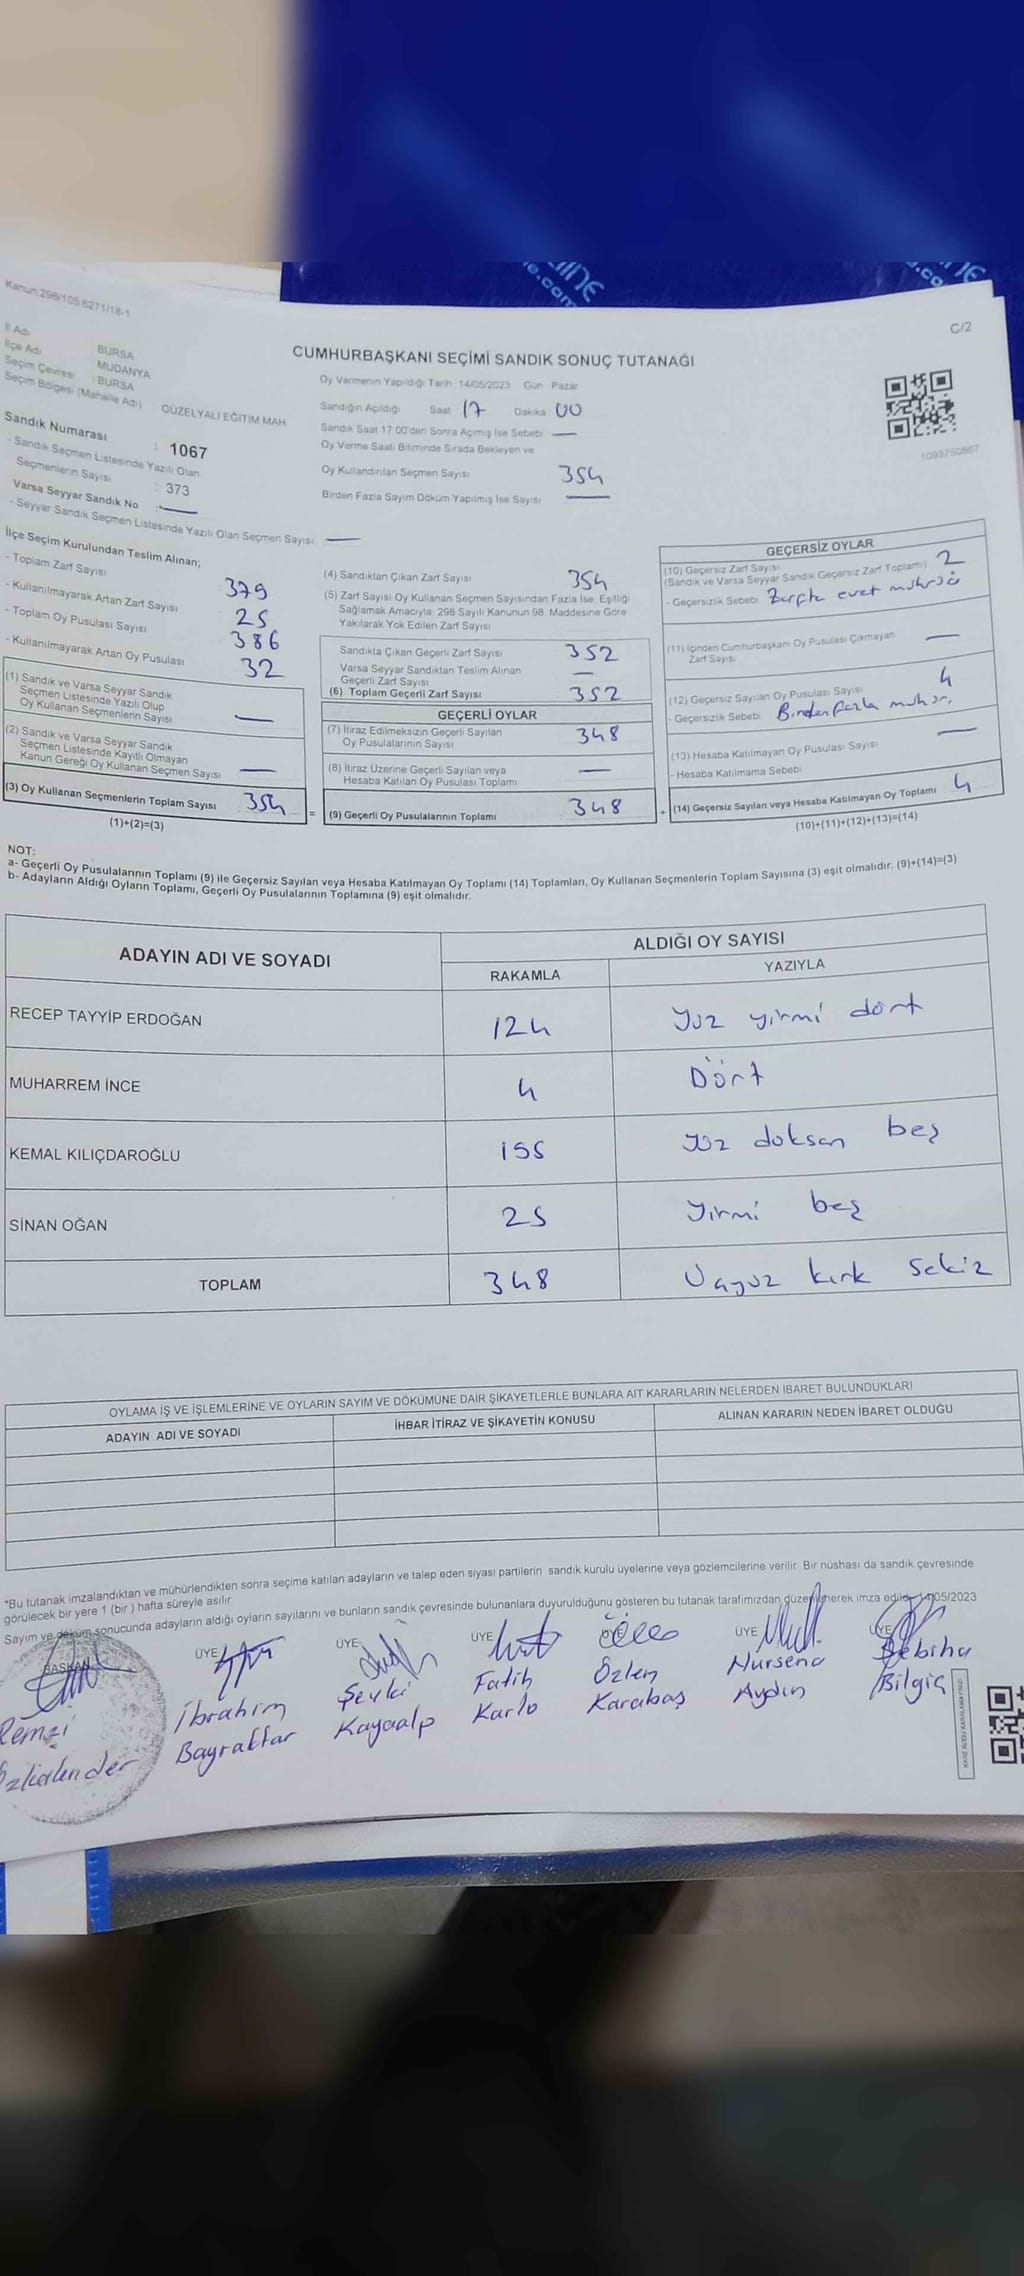 Kanun:298/105,6271/18-1
C/2
İl Adı : BURSA
İlçe Adı : MUDANYA
Seçim Çevresi : BURSA
Seçim Bölgesi (Mahalle Adı) : GÜZELYALI EĞİTİM MAH
CUMHURBAŞKANI SEÇİMİ SANDIK SONUÇ TUTANAĞI
Oy Vermenin Yapıldığı Tarih 14/05/2023 Gün Pazar
Sandığın Açıldığı Saat 17 Dakika 00
Sandık Saat 17:00'den Sonra Açılmış İse Sebebi —
Oy Verme Saati Bitiminde Sırada Bekleyen ve
Oy Kullandırılan Seçmen Sayısı 354
Birden Fazla Sayım Döküm Yapılmış İse Sayısı —
1093750867
Sandık Numarası : 1067
- Sandık Seçmen Listesinde Yazılı Olan
Seçmenlerin Sayısı : 373
Varsa Seyyar Sandık No : —
- Seyyar Sandık Seçmen Listesinde Yazılı Olan Seçmen Sayısı —
İlçe Seçim Kurulundan Teslim Alınan;
- Toplam Zarf Sayısı 379
- Kullanılmayarak Artan Zarf Sayısı 25
- Toplam Oy Pusulası Sayısı 386
- Kullanılmayarak Artan Oy Pusulası 32
(1) Sandık ve Varsa Seyyar Sandık
Seçmen Listesinde Yazılı Olup
Oy Kullanan Seçmenlerin Sayısı —
(2) Sandık ve Varsa Seyyar Sandık
Seçmen Listesinde Kayıtlı Olmayan
Kanun Gereği Oy Kullanan Seçmen Sayısı —
(3) Oy Kullanan Seçmenlerin Toplam Sayısı 354
(1)+(2)=(3)
(4) Sandıktan Çıkan Zarf Sayısı 354
(5) Zarf Sayısı Oy Kullanan Seçmen Sayısından Fazla İse, Eşitliği
Sağlamak Amacıyla; 298 Sayılı Kanunun 98. Maddesine Göre
Yakılarak Yok Edilen Zarf Sayısı
Sandıkta Çıkan Geçerli Zarf Sayısı 352
Varsa Seyyar Sandıktan Teslim Alınan
Geçerli Zarf Sayısı —
(6) Toplam Geçerli Zarf Sayısı 352
GEÇERLİ OYLAR
(7) İtiraz Edilmeksizin Geçerli Sayılan
Oy Pusulalarının Sayısı 348
(8) İtiraz Üzerine Geçerli Sayılan veya
Hesaba Katılan Oy Pusulası Toplamı —
= (9) Geçerli Oy Pusulalarının Toplamı 348 +
GEÇERSİZ OYLAR
(10) Geçersiz Zarf Sayısı
(Sandık ve Varsa Seyyar Sandık Geçersiz Zarf Toplamı) 2
- Geçersizlik Sebebi Zarfta evet mührü
(11) İçinden Cumhurbaşkanı Oy Pusulası Çıkmayan
Zarf Sayısı —
(12) Geçersiz Sayılan Oy Pusulası Sayısı 4
- Geçersizlik Sebebi Birden fazla
(13) Hesaba Katılmayan Oy Pusulası Sayısı —
- Hesaba Katılmama Sebebi
(14) Geçersiz Sayılan veya Hesaba Katılmayan Oy Toplamı 4
(10)+(11)+(12)+(13)=(14)
NOT:
a- Geçerli Oy Pusulalarının Toplamı (9) ile Geçersiz Sayılan veya Hesaba Katılmayan Oy Toplamı (14) Toplamları, Oy Kullanan Seçmenlerin Toplam Sayısına (3) eşit olmalıdır. (9)+(14)=(3)
b- Adayların Aldığı Oyların Toplamı, Geçerli Oy Pusulalarının Toplamına (9) eşit olmalıdır.
ADAYIN ADI VE SOYADI
ALDIĞI OY SAYISI
RAKAMLA YAZIYLA
RECEP TAYYİP ERDOĞAN 124 Yüz yirmi dört
MUHARREM İNCE 4 Dört
KEMAL KILIÇDAROĞLU 195 Yüz doksan beş
SİNAN OĞAN 25 Yirmi beş
TOPLAM 348 Üçyüz kırk sekiz
OYLAMA İŞ VE İŞLEMLERİNE VE OYLARIN SAYIM VE DÖKÜMÜNE DAİR ŞİKAYETLERLE BUNLARA AİT KARARLARIN NELERDEN İBARET BULUNDUKLARI
ADAYIN ADI VE SOYADI İHBAR İTİRAZ VE ŞİKAYETİN KONUSU ALINAN KARARIN NEDEN İBARET OLDUĞU
*Bu tutanak imzalandıktan ve mühürlendikten sonra seçime katılan adayların ve talep eden siyasi partilerin sandık kurulu üyelerine veya gözlemcilerine verilir. Bir nüshası da sandık çevresinde
görülecek bir yere 1 (bir) hafta süreyle asılır.
Sayım ve döküm sonucunda adayların aldığı oyların sayılarını ve bunların sandık çevresinde bulunanlara duyurulduğunu gösteren bu tutanak tarafımızdan düzenlenerek imza edildi. 14/05/2023
BAŞKAN ÜYE ÜYE ÜYE ÜYE ÜYE ÜYE
Remzi İbrahim Şevki Fatih Özlem Nursena Sebiha
Bayraktar Kayaalp Karlo Karabaş Aydın Bilgiç